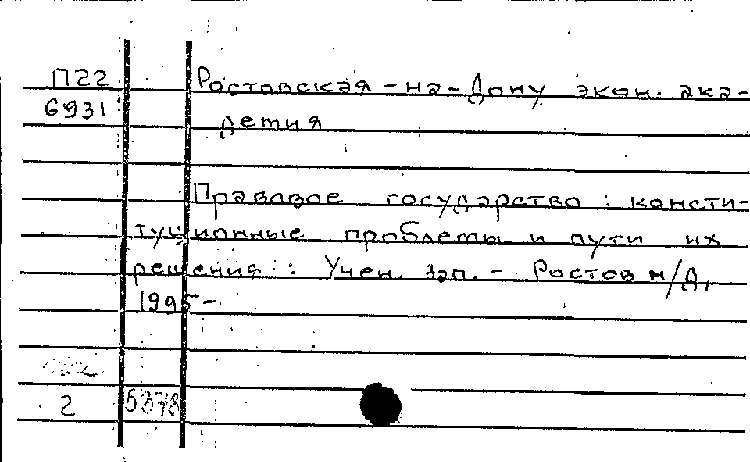 П22
6931
Ростовская-на-Дону экон. ака-
демия
Правовое государство: консти-
туционные проблемы и пути их
решения: Учен. зап. - Ростов н/Д,
1995-
2